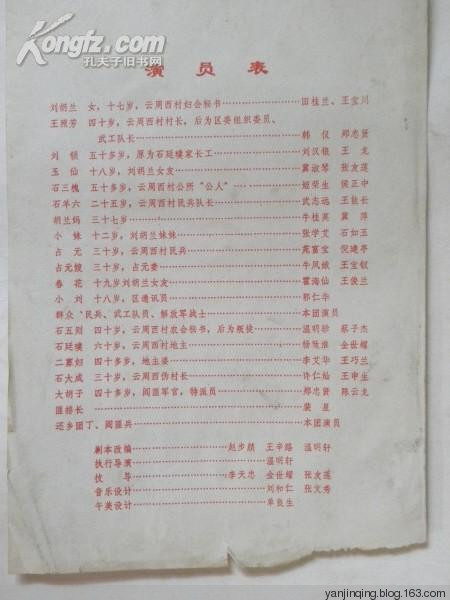 Kongfz.com
孔夫子旧书网
演员表
刘胡兰 女，十七岁，云周西村妇会秘书……田桂兰、王宝川
王照芳 四十岁，云周西村村长，后为区委组织委员、
武工队长……韩仪 郑忠贤
刘顿 五十多岁，原为石廷璞家长工……刘汉银 王龙
玉仙 十八岁，刘胡兰女友……冀淑琴 张友莲
石三槐 五十多岁，云周西村公所“公人”……姬荣生 侯正中
石羊六 二十五岁，云周西村民兵队长……武志远 王乾长
胡兰妈 三十七岁……牛桂英 冀萍
小妹 十二岁，刘胡兰妹妹……张学艾 石如玉
占元 三十岁，云周西村民兵……苑富宝 倪建亭
占元嫂 三十岁，占元妻……牛凤娥 王宝钗
春花 十九岁刘胡兰女友……霍海仙 王俊兰
小刘 十八岁，区通讯员……郭仁华
群众、民兵、武工队员、解放军战士……本团演员
石五则 四十岁，云周西村农会秘书，后为叛徒……温明珍 蔡子杰
石廷璞 六十岁，云周西村地主……杨晚淮 金世耀
二寡妇 四十多岁，地主婆……李艾华 王巧兰
石大成 三十岁，云周西伪村长……许仁灿 王申生
大胡子 四十多岁，阎匪军官，特派员……郑忠贤 陈云龙
匪排长……裴星
还乡团丁、阎匪兵……本团演员
剧本改编……赵步颜 王辛路 温明轩
执行导演……温明轩
技导……李天忠 金世耀 张友莲
音乐设计……刘和仁 张文秀
午美设计……单良生
yanjinqing.blog.163.com